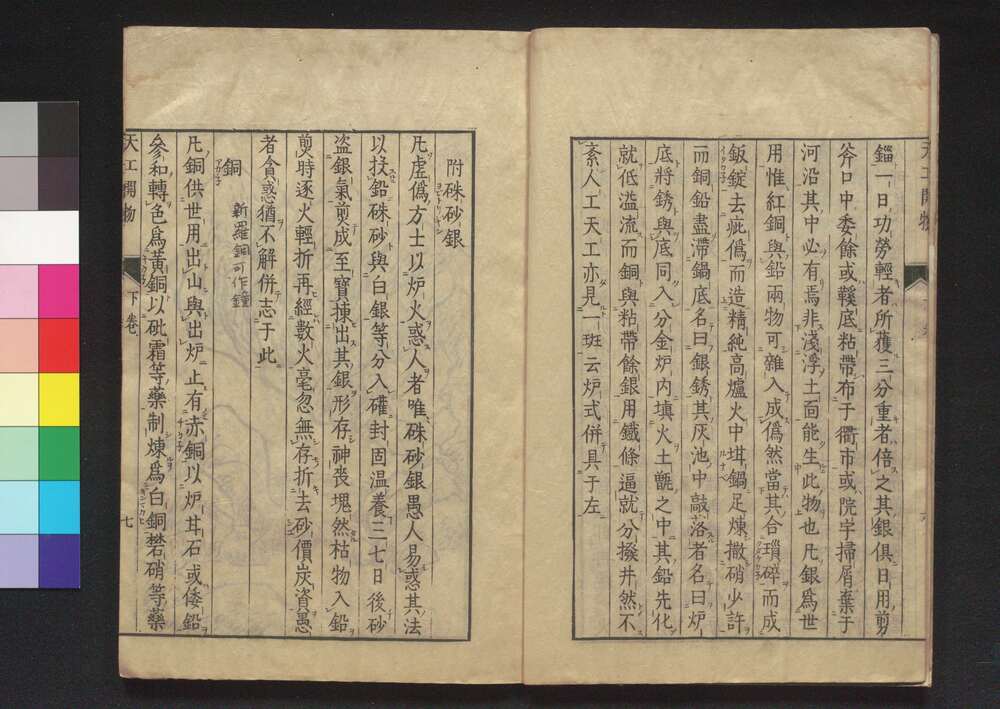 錙一日功勞輕者所獲三分重者倍之其銀俱日用剪
斧口中委餘或鞵底粘帶布于衢市或院宇掃屑棄于
河沿其中必有焉非淺浮土面能生此物也凡銀爲世
用惟紅銅與鉛兩物可雜入成僞然當其合瑣碎而成
鈑錠去疵僞而造精純高爐火中坩鍋足煉撒硝少許
而銅鉛盡滯鍋底名曰銀銹其灰池中敲落者名曰炉
底將銹與底同入分金炉内填火土甑之中其鉛先化
就低溢流而銅與粘帶餘銀用鐵條逼就分撥井然不
紊人工天工亦見一斑云炉式併具于左
附硃砂銀
凡虛僞方士以炉火惑人者唯硃砂銀愚人易惑其法
以投鉛硃砂與白銀等分入礶封固温養三七日後砂
盜銀氣煎成至寶揀出其銀形存神喪塊然枯物入鉛
煎時逐火輕折再經數火毫忽無存折去砂價炭資愚
者貪惑猶不解併志于此
銅
新羅銅可作鐘
凡銅供世用出山與出炉止有赤銅以炉甘石或倭鉛
參和轉色爲黃銅以砒霜等藥制煉爲白銅礬硝等藥
天工開物
下卷
七